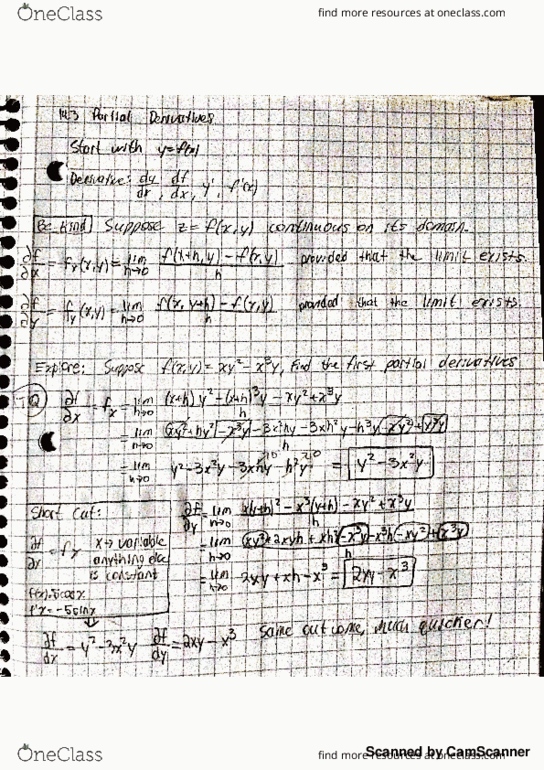 OneClass
find more resources at oneclass.com
14.3 Partial Derivatives
Start with y=f(x)
Derivative: dy/dx, df/dx, y', f'(x)
Be Kind Suppose z=f(x,y) continuous on its domain.
∂f/∂x = fx(x,y) = lim h→0 f(x+h,y)-f(x,y)/h provided that the limit exists.
∂f/∂y = fy(x,y) = lim h→0 f(x,y+h)-f(x,y)/h provided that the limit exists.
Explore: Suppose f(x,y)= xy²-x³y, Find the first partial derivatives
∂f/∂x = fx = lim h→0 (x+h)y²-(x+h)³y-xy²+x³y/h
= lim h→0 xy²+hy²-x³y-3x²hy-3xh²y-h³y-xy²+x³y/h
= lim h→0 y²-3x²y-3xhy-h²y = y²-3x²y
Short Cut:
∂f/∂x = fx x→ variable
anything else
is constant
f(x)=5cosx
f'x=-5sinx
∂f/∂y = lim h→0 x(y+h)²-x³(y+h)-xy²+x³y/h
= lim h→0 xy²+2xyh+xh²-x³y-x³h-xy²+x³y/h
= lim h→0 2xy+xh-x³ = 2xy-x³
∂f/∂x = y²-3x²y ∂f/∂y = 2xy-x³ Same outcome, much quicker!
OneClass
find more resources at oneclass.com
Scanned by CamScanner